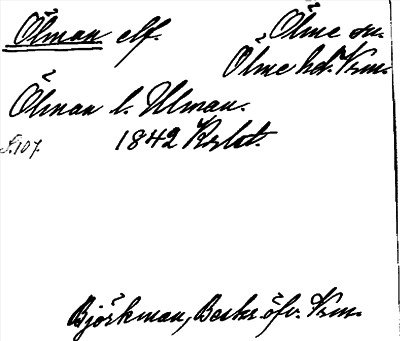 Ölman elf. Ölme sn.
Ölme hd. Vrm.
Ölman l. Ulman.
S. 107. 1842 Krlst.
Björkman, Beskr. öfv. Vrm.